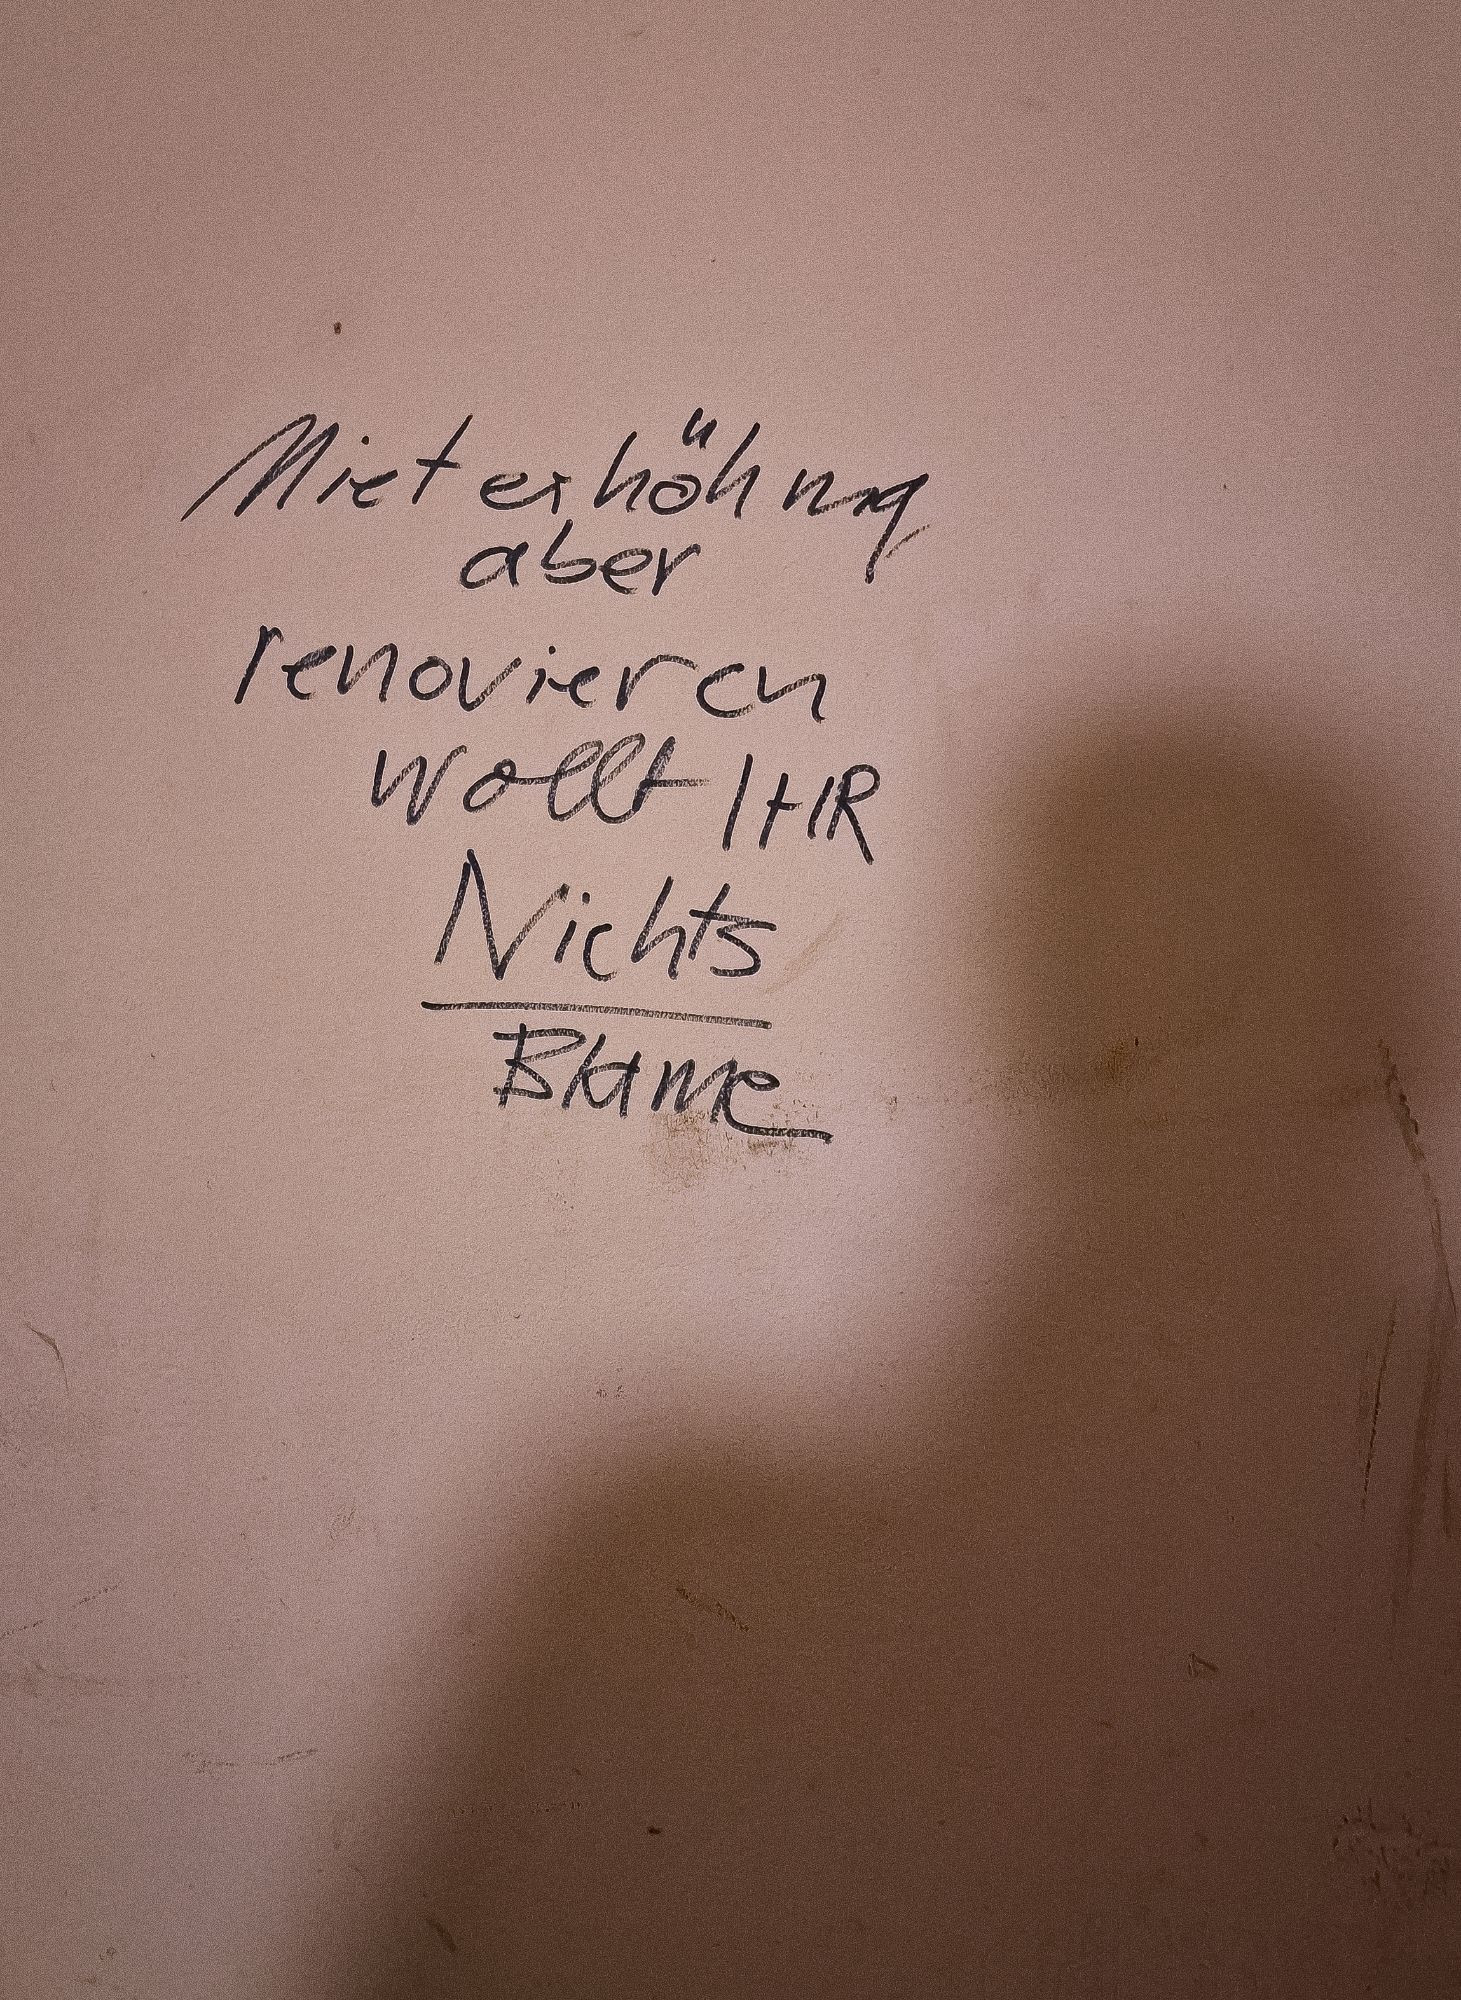 Mieterhöhung
aber
renovieren
wollt IHR
Nichts
Blame